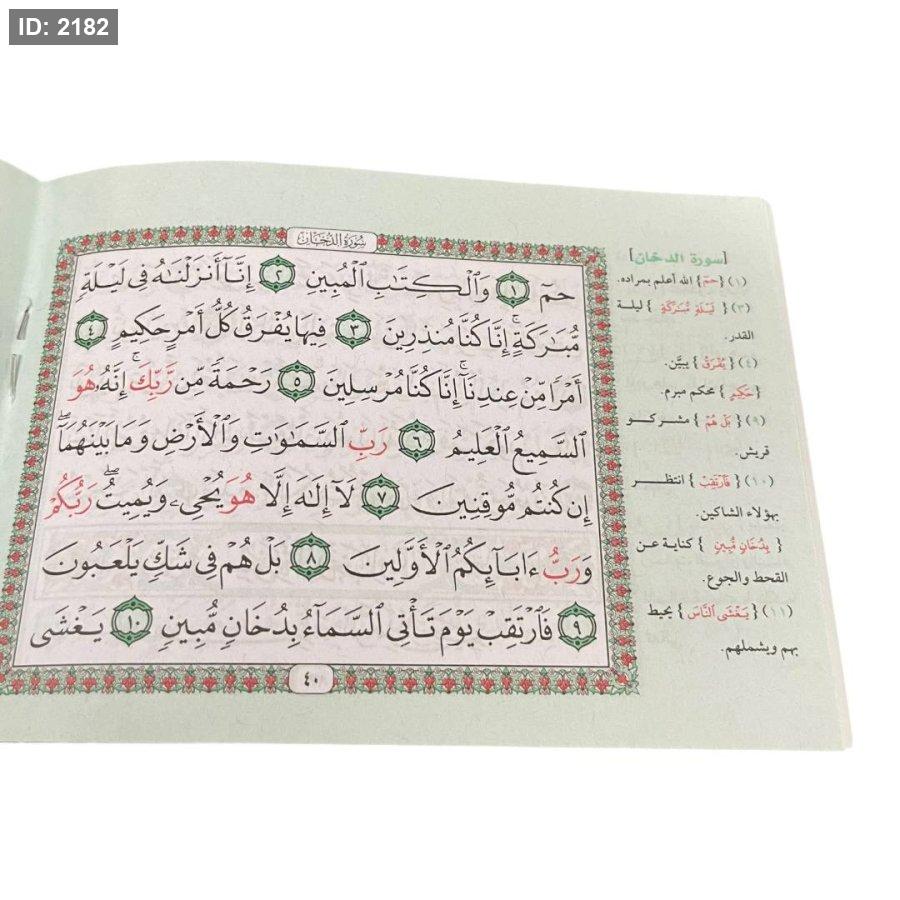 ID: 2182
سُورَةُ الدُّخَان
حمٓ ١ وَٱلْكِتَٰبِ ٱلْمُبِينِ ٢ إِنَّآ أَنزَلْنَٰهُ فِى لَيْلَةٍ
مُّبَٰرَكَةٍ ۚ إِنَّا كُنَّا مُنذِرِينَ ٣ فِيهَا يُفْرَقُ كُلُّ أَمْرٍ حَكِيمٍ ٤
أَمْرًا مِّنْ عِندِنَآ ۚ إِنَّا كُنَّا مُرْسِلِينَ ٥ رَحْمَةً مِّن رَّبِّكَ ۚ إِنَّهُۥ هُوَ
ٱلسَّمِيعُ ٱلْعَلِيمُ ٦ رَبِّ ٱلسَّمَٰوَٰتِ وَٱلْأَرْضِ وَمَا بَيْنَهُمَآ ۖ
إِن كُنتُم مُّوقِنِينَ ٧ لَآ إِلَٰهَ إِلَّا هُوَ يُحْىِۦ وَيُمِيتُ ۖ رَبُّكُمْ
وَرَبُّ ءَابَآئِكُمُ ٱلْأَوَّلِينَ ٨ بَلْ هُمْ فِى شَكٍّ يَلْعَبُونَ
٩ فَٱرْتَقِبْ يَوْمَ تَأْتِى ٱلسَّمَآءُ بِدُخَانٍ مُّبِينٍ ١٠ يَغْشَى
٤٠
[سورة الدخان]
(١) {حمٓ} الله أعلم بمراده.
(٣) {لَيْلَةٍ مُّبَٰرَكَةٍ} ليلة
القدر.
(٤) {يُفْرَقُ} يبيَّن.
{حَكِيمٍ} محكم مبرم.
(٩) {بَلْ هُمْ} مشركو
قريش.
(١٠) {فَٱرْتَقِبْ} انتظر
بهؤلاء الشاكين.
{بِدُخَانٍ مُّبِينٍ} كناية عن
القحط والجوع.
(١١) {يَغْشَى ٱلنَّاسَ} يحيط
بهم ويشملهم.